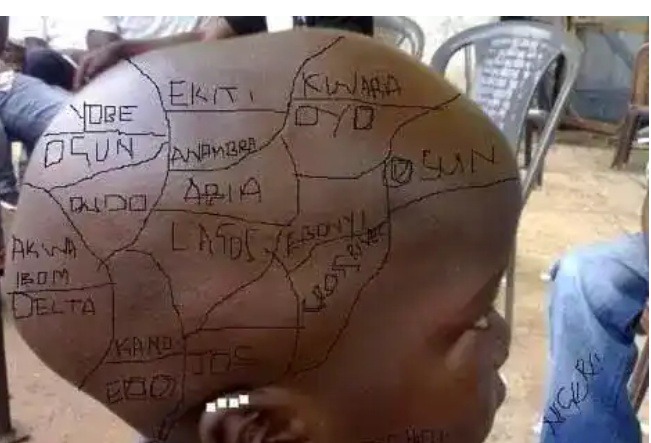 EKITI
KWARA
YOBE
OYO
OSUN
ANAMBRA
OSUN
ABIA
ONDO
LAGOS
EBONYI
AKWA
IBOM
CROSS RIVER
DELTA
KANO
JOS
EDO